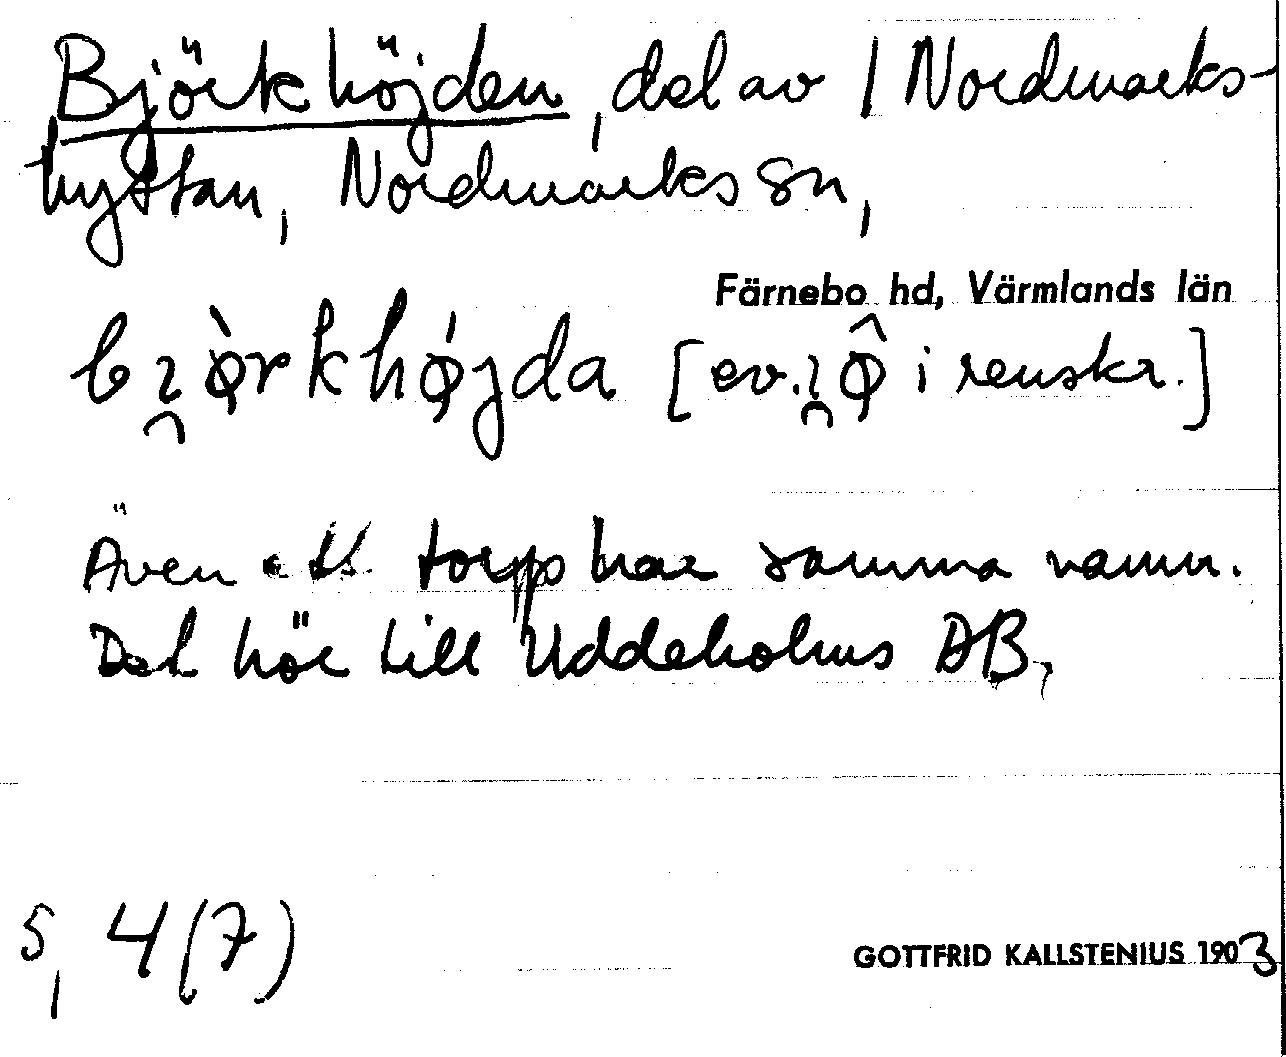 Björkhöjden, del av 1 Nordmarks-
hyttan, Nordmarks sn,
Färnebo hd, Värmlands län
bı̯ø̀rkhǿjda [ev. ı̯ø̂ i renskr.]
Även ett torp har samma namn.
Det hör till Uddeholms AB,
5, 4(7)
GOTTFRID KALLSTENIUS 1903